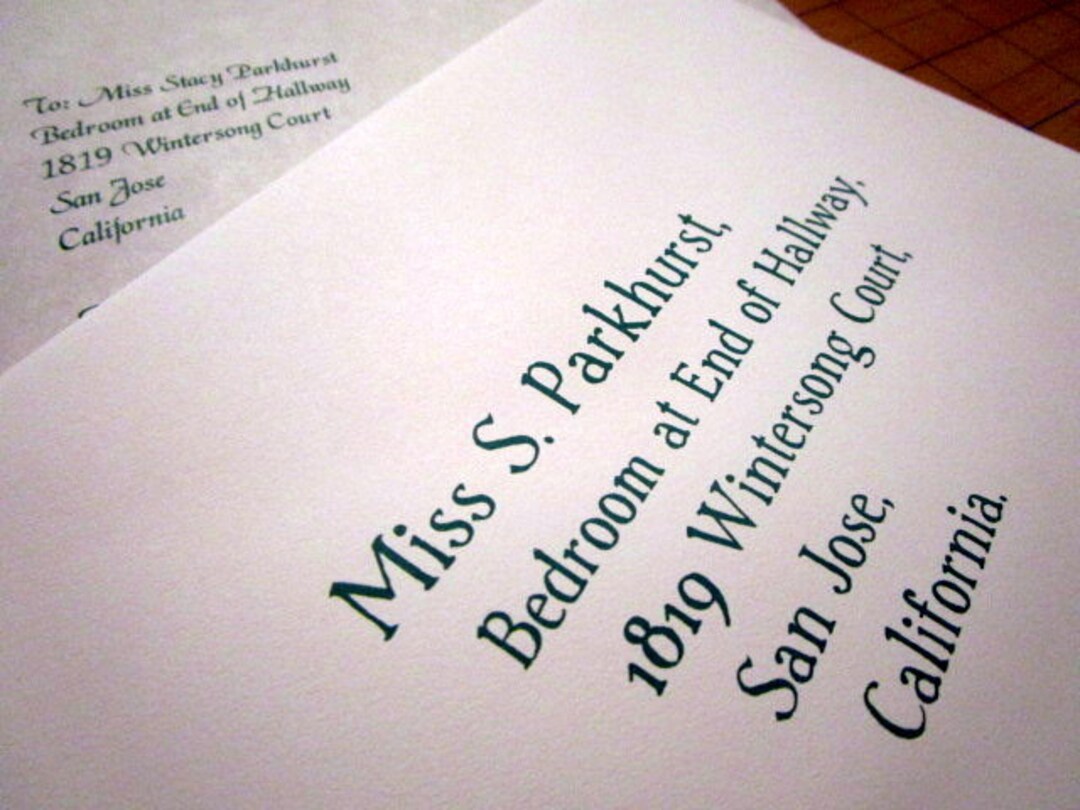 To: Miss Stacy Parkhurst
Bedroom at End of Hallway
1819 Wintersong Court
San Jose
California
Miss S. Parkhurst,
Bedroom at End of Hallway,
1819 Wintersong Court,
San Jose,
California.